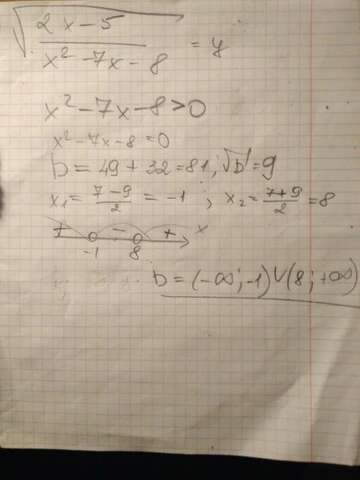 √((2x-5)/(x²-7x-8)) = y
x²-7x-8>0
x²-7x-8=0
D=49+32=81; √D=9
x₁=(7-9)/2=-1; x₂=(7+9)/2=8
+ - + x
-1 8
D=(-∞;-1)∪(8;+∞)